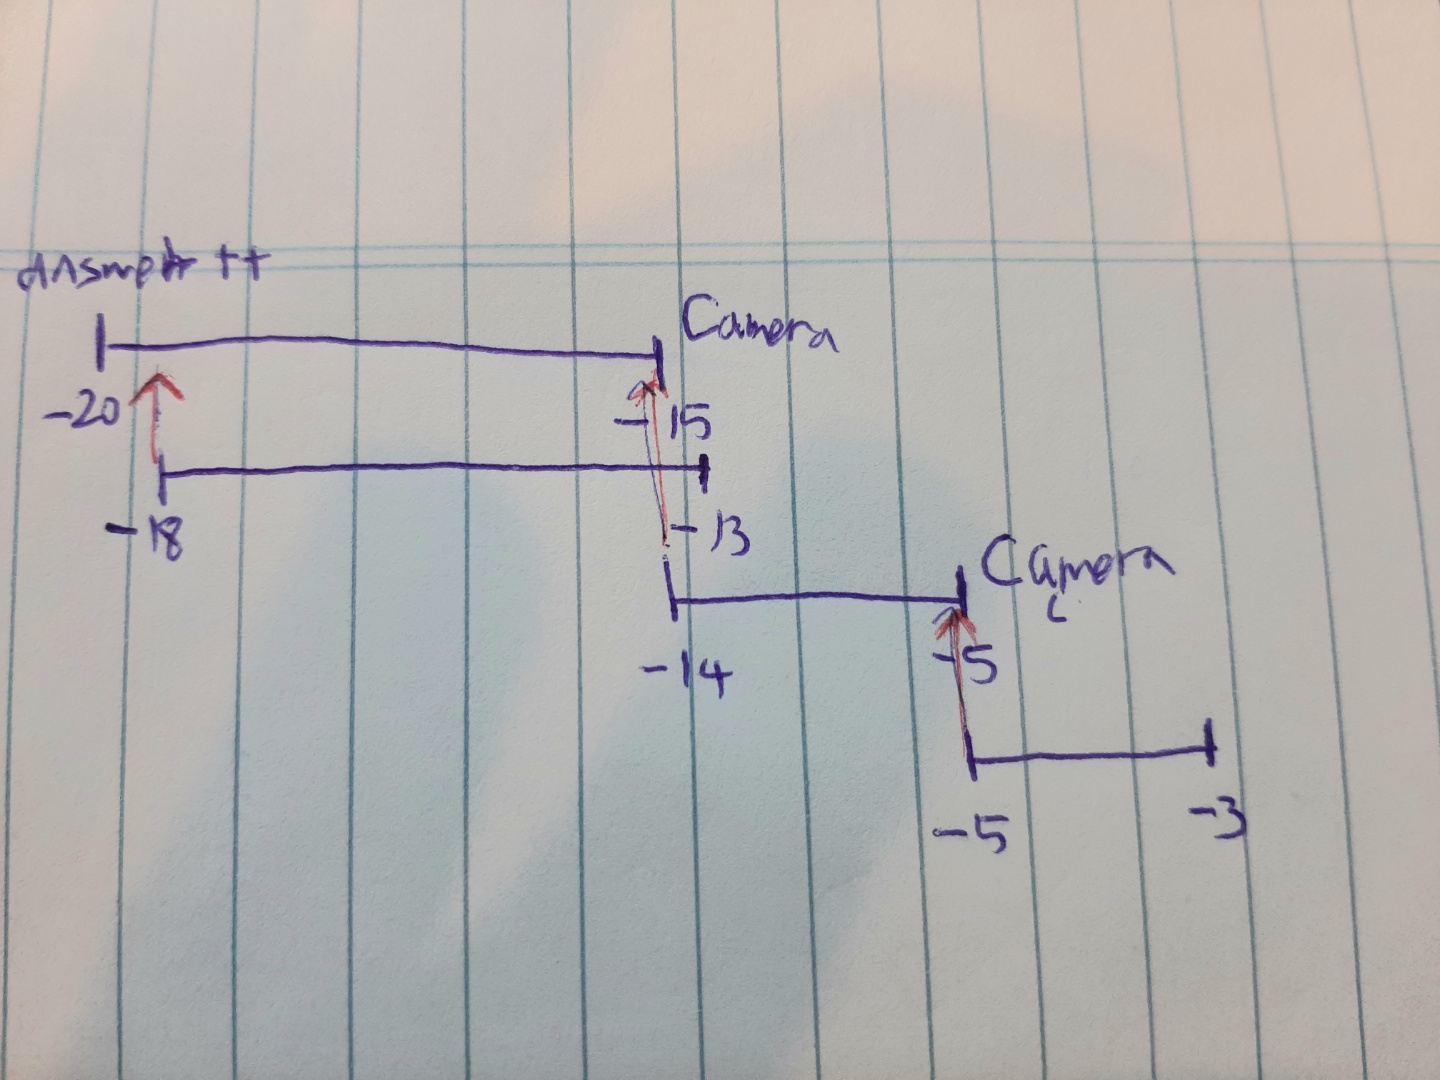 answer ++
Camera
-20
-15
-18
-13
Camera
-14
-5
-5
-3